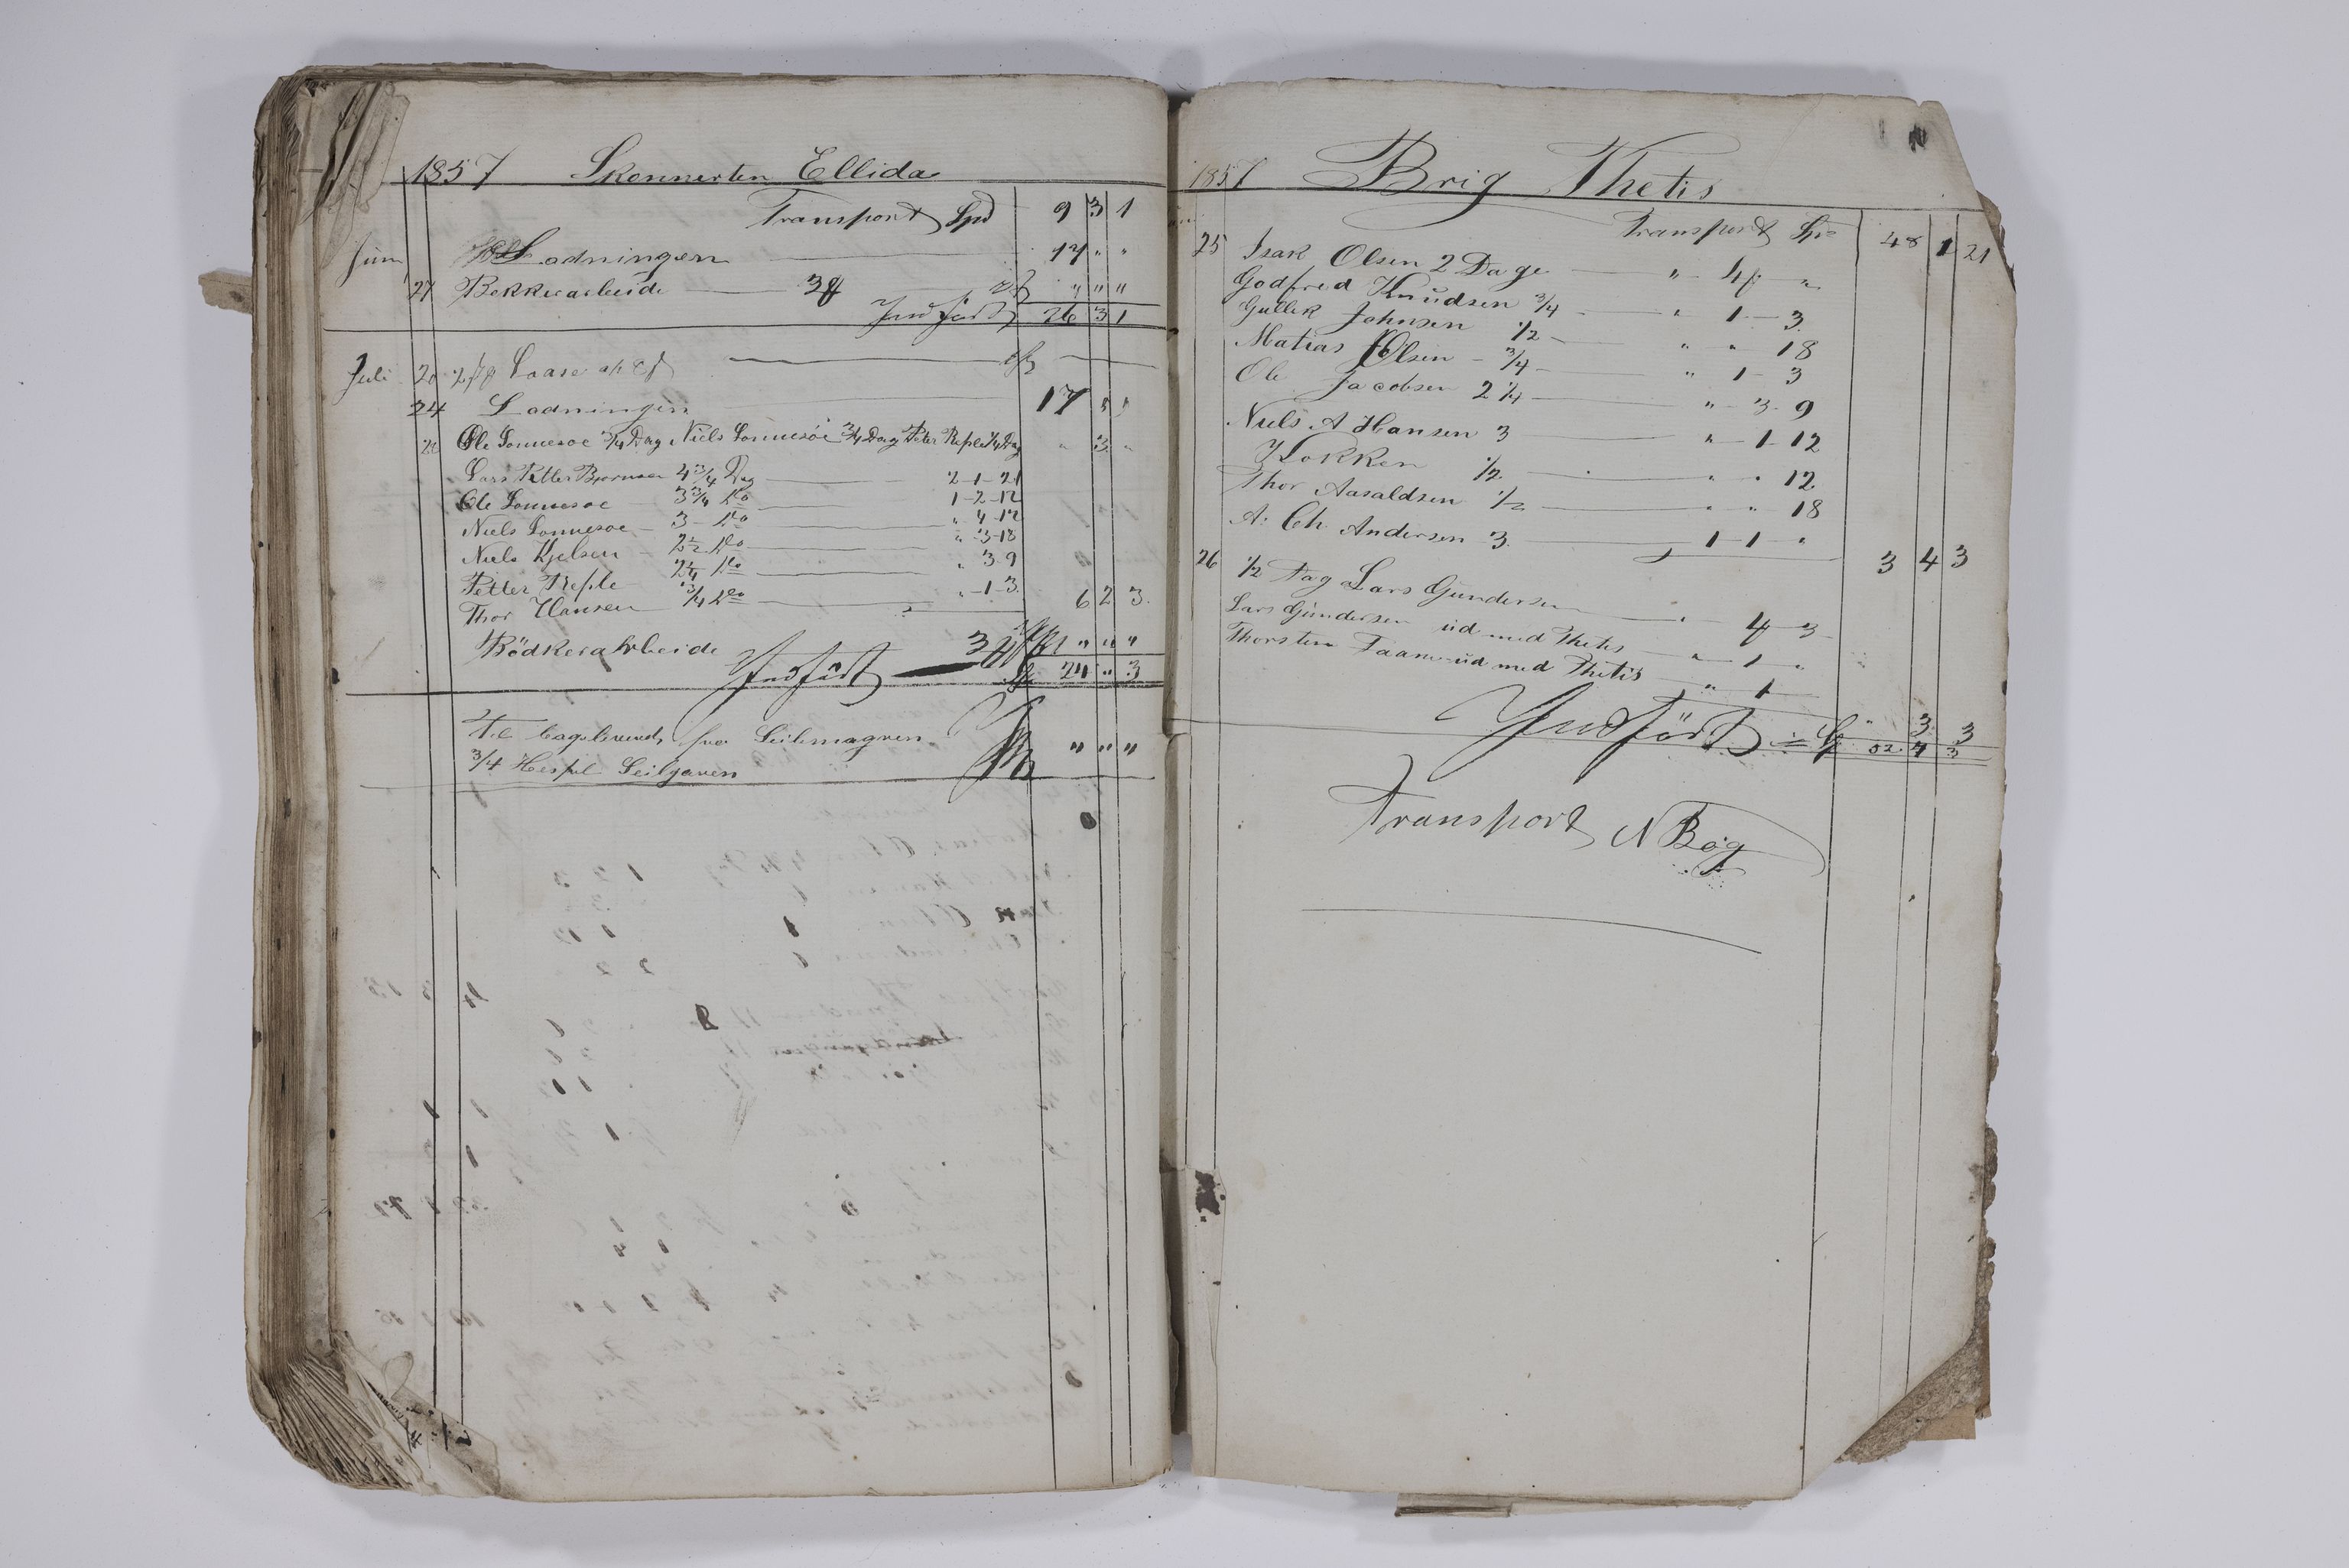 1857 Skonnerten Ellida
Transport Spd 9 3 1
Juni Ladningen 17 " "
27 Bekkerarbeide 3 " " "
Indført 26 3 1
Juli 20
24 Ladningen 17 " "
Ole Lonnesoe 3/4 Dag Niels Lonnesöe 3/4 Dag Peter Reple 1/4 Dag " 3 "
Lars Petter Bjornsen 4 3/4 Dag 2-1-21
Ole Lonnesoe 3 3/4 Do 1-2-12
Niels Lonnesoe 3 - Do " 4-12
Niels Kjelsen 2 1/2 Do " 3-18
Petter Reple 2 1/4 Do " 3 9
Thor Hansen 3/4 Do " -1-3 6 2 3
Bödkerarbeide 3 " " "
Indført 24 " 3
fra Seilmageren
3/4 Hespel Seilgaren " " "
1857 Brig Thetis
Transport Sp 48 1 21
25 Isak Olsen 2 Dage " 4 "
Godfred Knudsen 3/4 " 1-3
Gullik Johnsen 1/2 " " 18
Matias Olsen - 3/4 " 1-3
Ole Jacobsen 2 1/4 " 3-9
Niels A Hansen 3 " 1-12
Kokken 1/2 " " 12
Thor Aasaldsen 1/2 " " 18
A: Ch. Andersen 3 1 1 " 3 4 3
26 1/2 Dag Lars Gundersen " 4 3
Lars Gündersen üd med Thetis " 1 "
Thorsten Faane üd med Thetis " 1
" 3 3
Indført 52 4 3
Transport N Bog